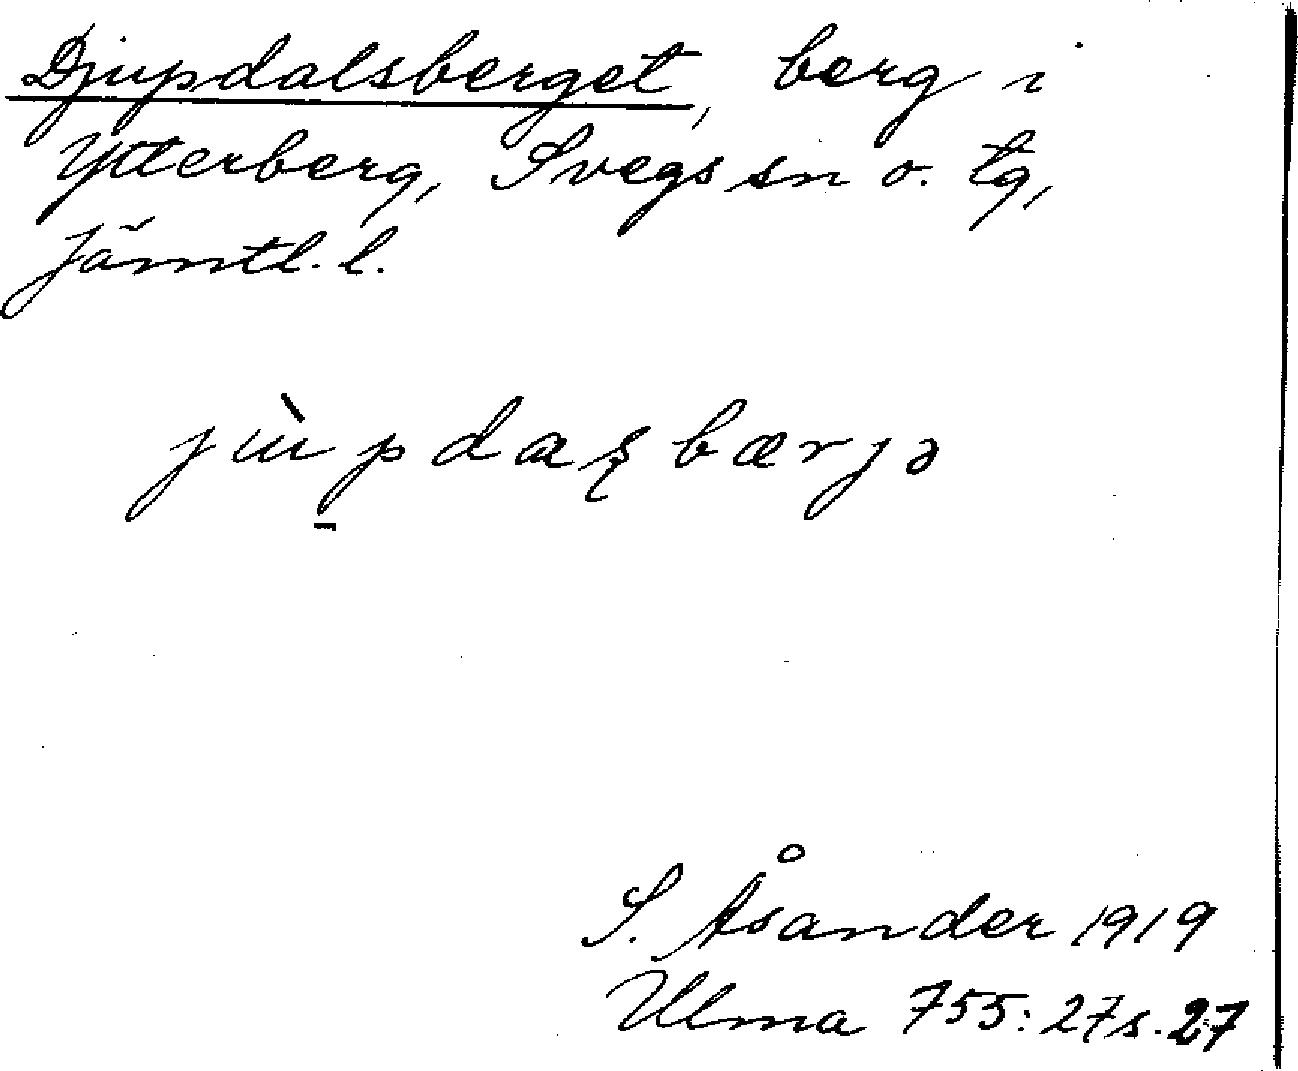 Djupdalsberget, berg i
Ytterberg, Svegs sn o. tg,
Jämtl. l.
jɯ̀p̠daʂbærjə
S. Åsander 1919
Ulma 755:27 s. 27